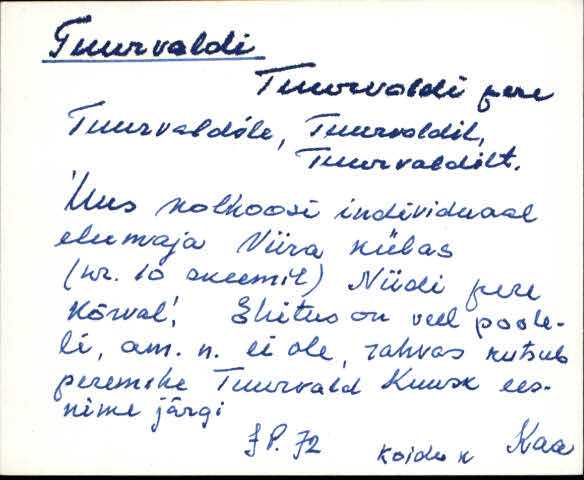 Tuurvaldi
Tuurvaldi pere
Tuurvaldile, Tuurvaldil,
Tuurvaldilt.
Uus kolhoosi individuaal
elumaja Viira külas
(nr. 10 skeemil) Niidi pere
kõrval. Ehitus on veel poole-
li, am. n. ei ole, rahvas kutsub
peremehe Tuurvald Kuusk ees-
nime järgi
J P. 72 Koidu K Kaa